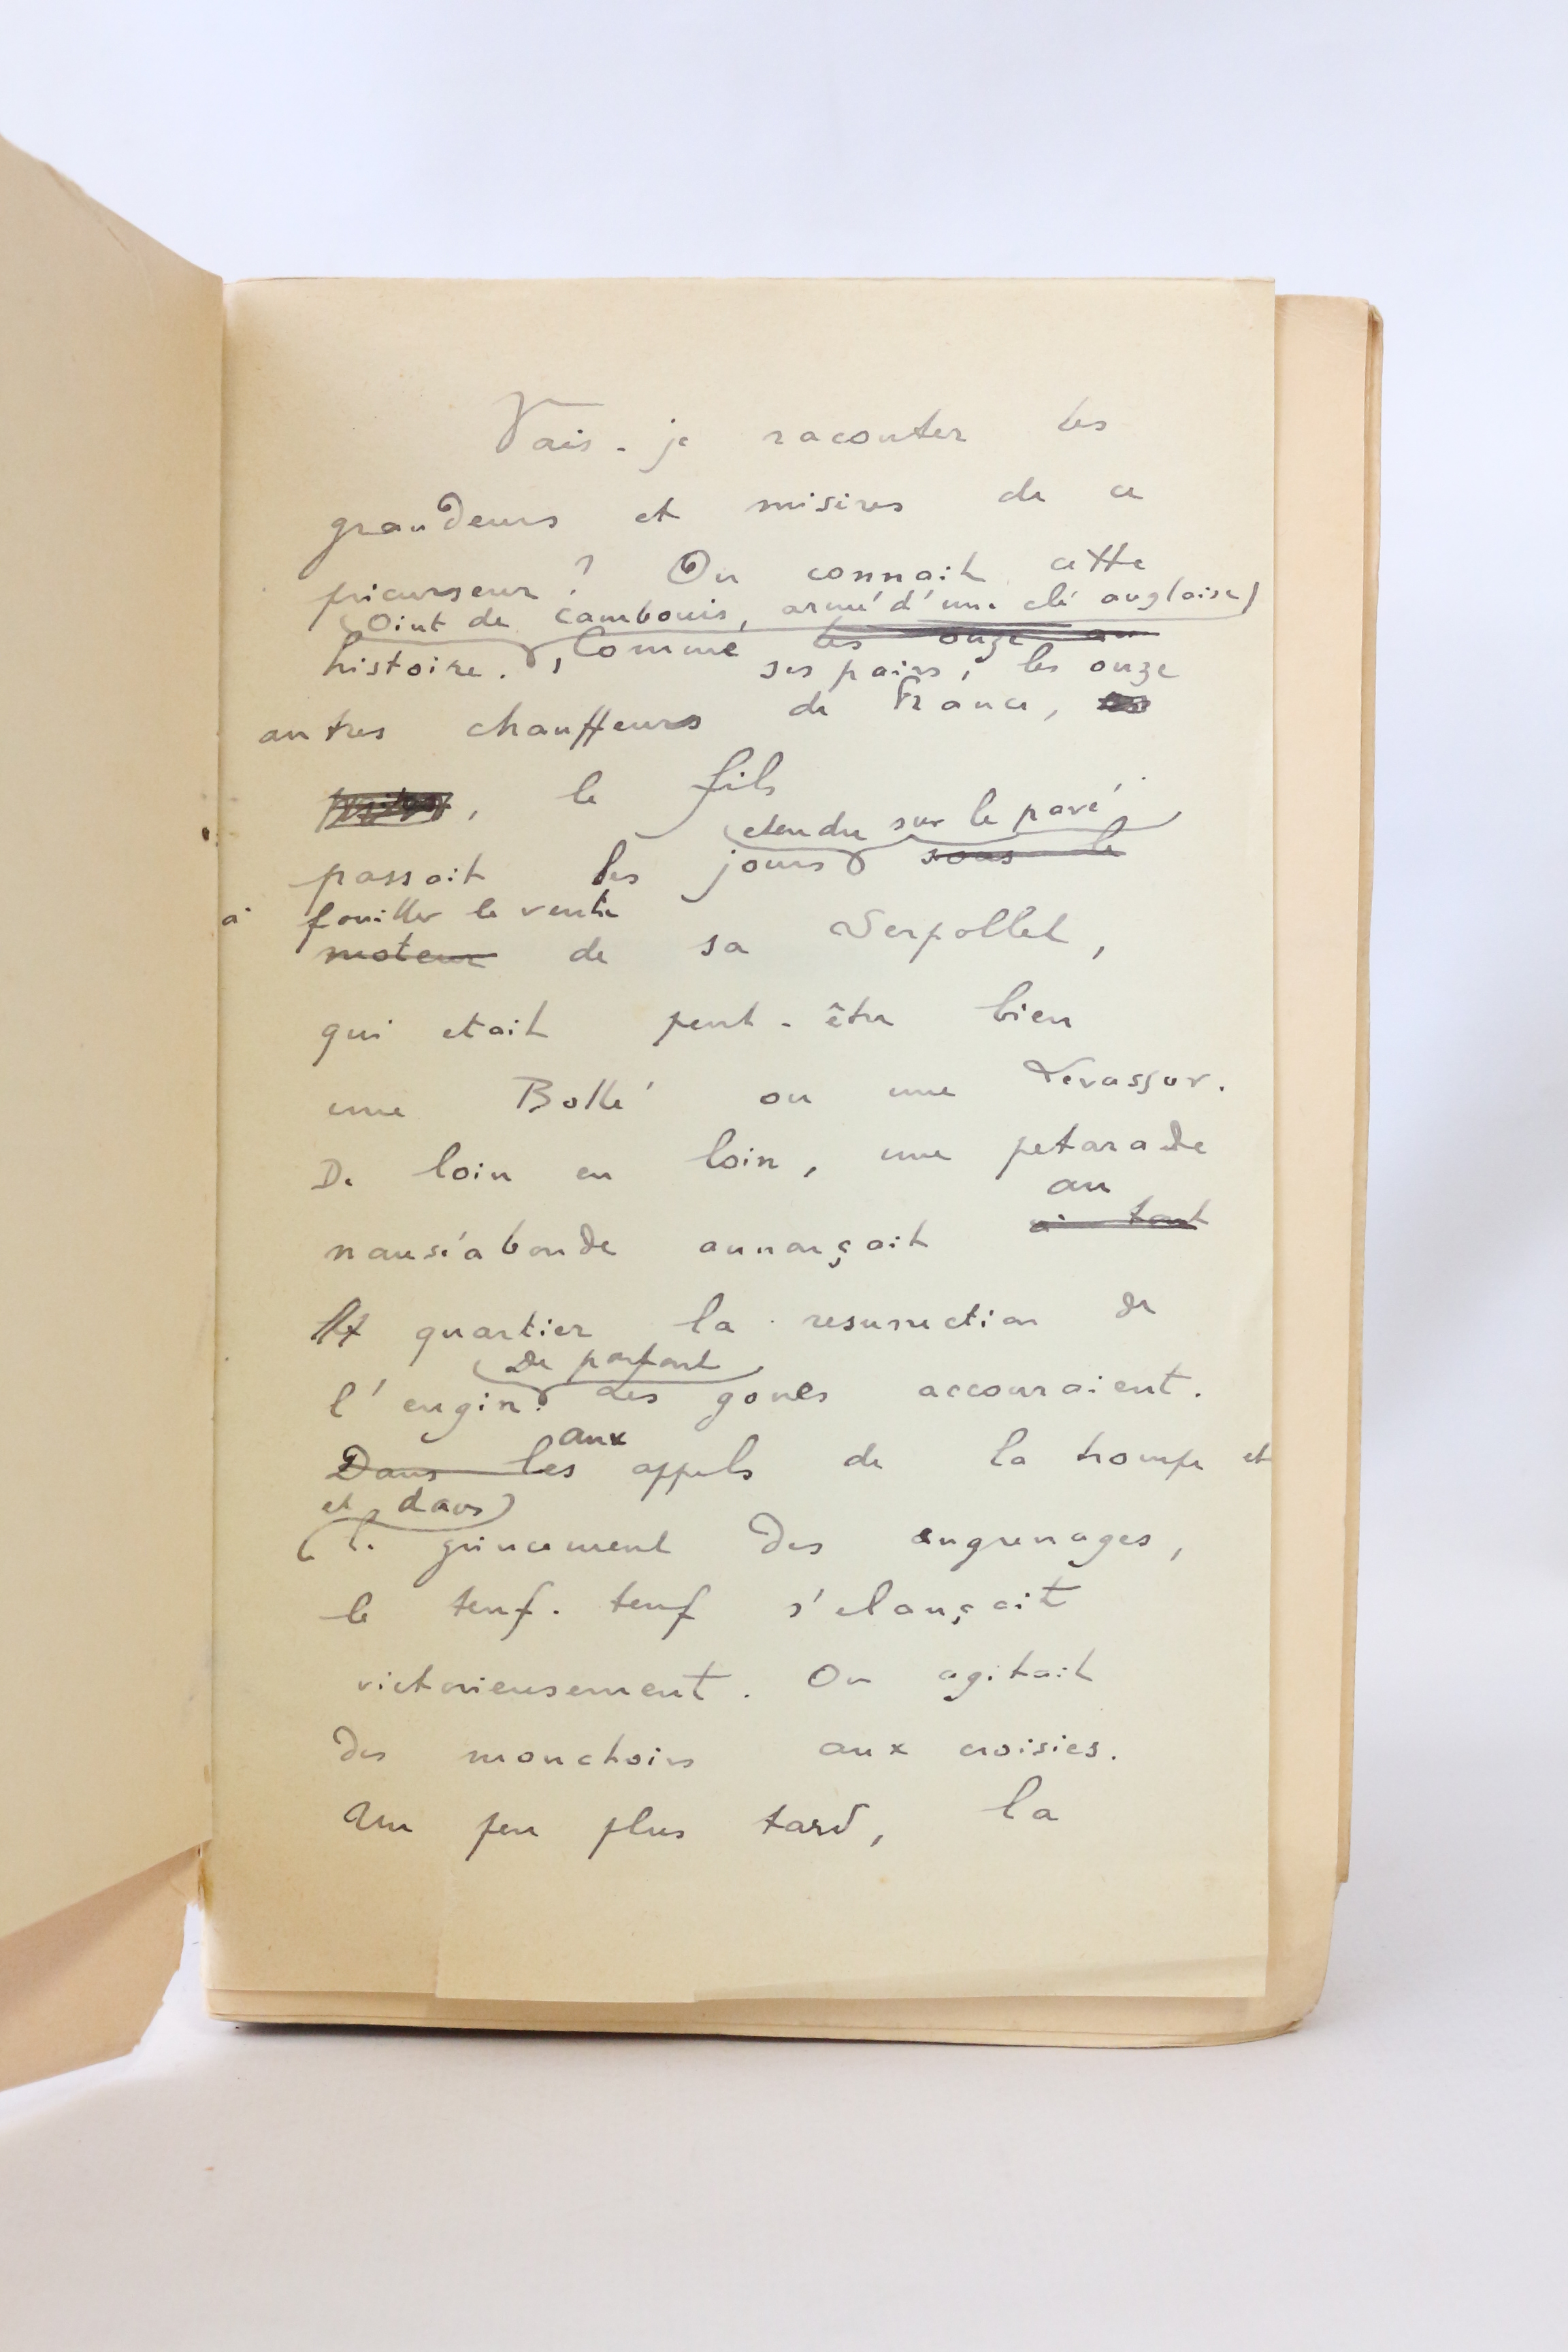 Vais-je raconter les
grandeurs et misères de ce
précurseur ? On connait cette
Oint de cambouis, armé d'une clé anglaise,
les onze au
histoire. Comme ses pairs, les onze
autres chauffeurs de France,
, le fils
etendu sur le pavé
passait les jours sous le
à fouiller le ventre
moteur de sa Serpollet,
qui etait peut-être bien
une Bollé ou une Levassor.
De loin en loin, une petarade
au
nauséabonde annonçait à tout
quartier la resurrection de
De partout
l'engin. des gones accouraient.
aux
Dans les appels de la trompe et
et dans
le grincement des engrenages,
le teuf-teuf s'elançait
victorieusement. On agitait
des mouchoirs aux croisées.
Un peu plus tard, la